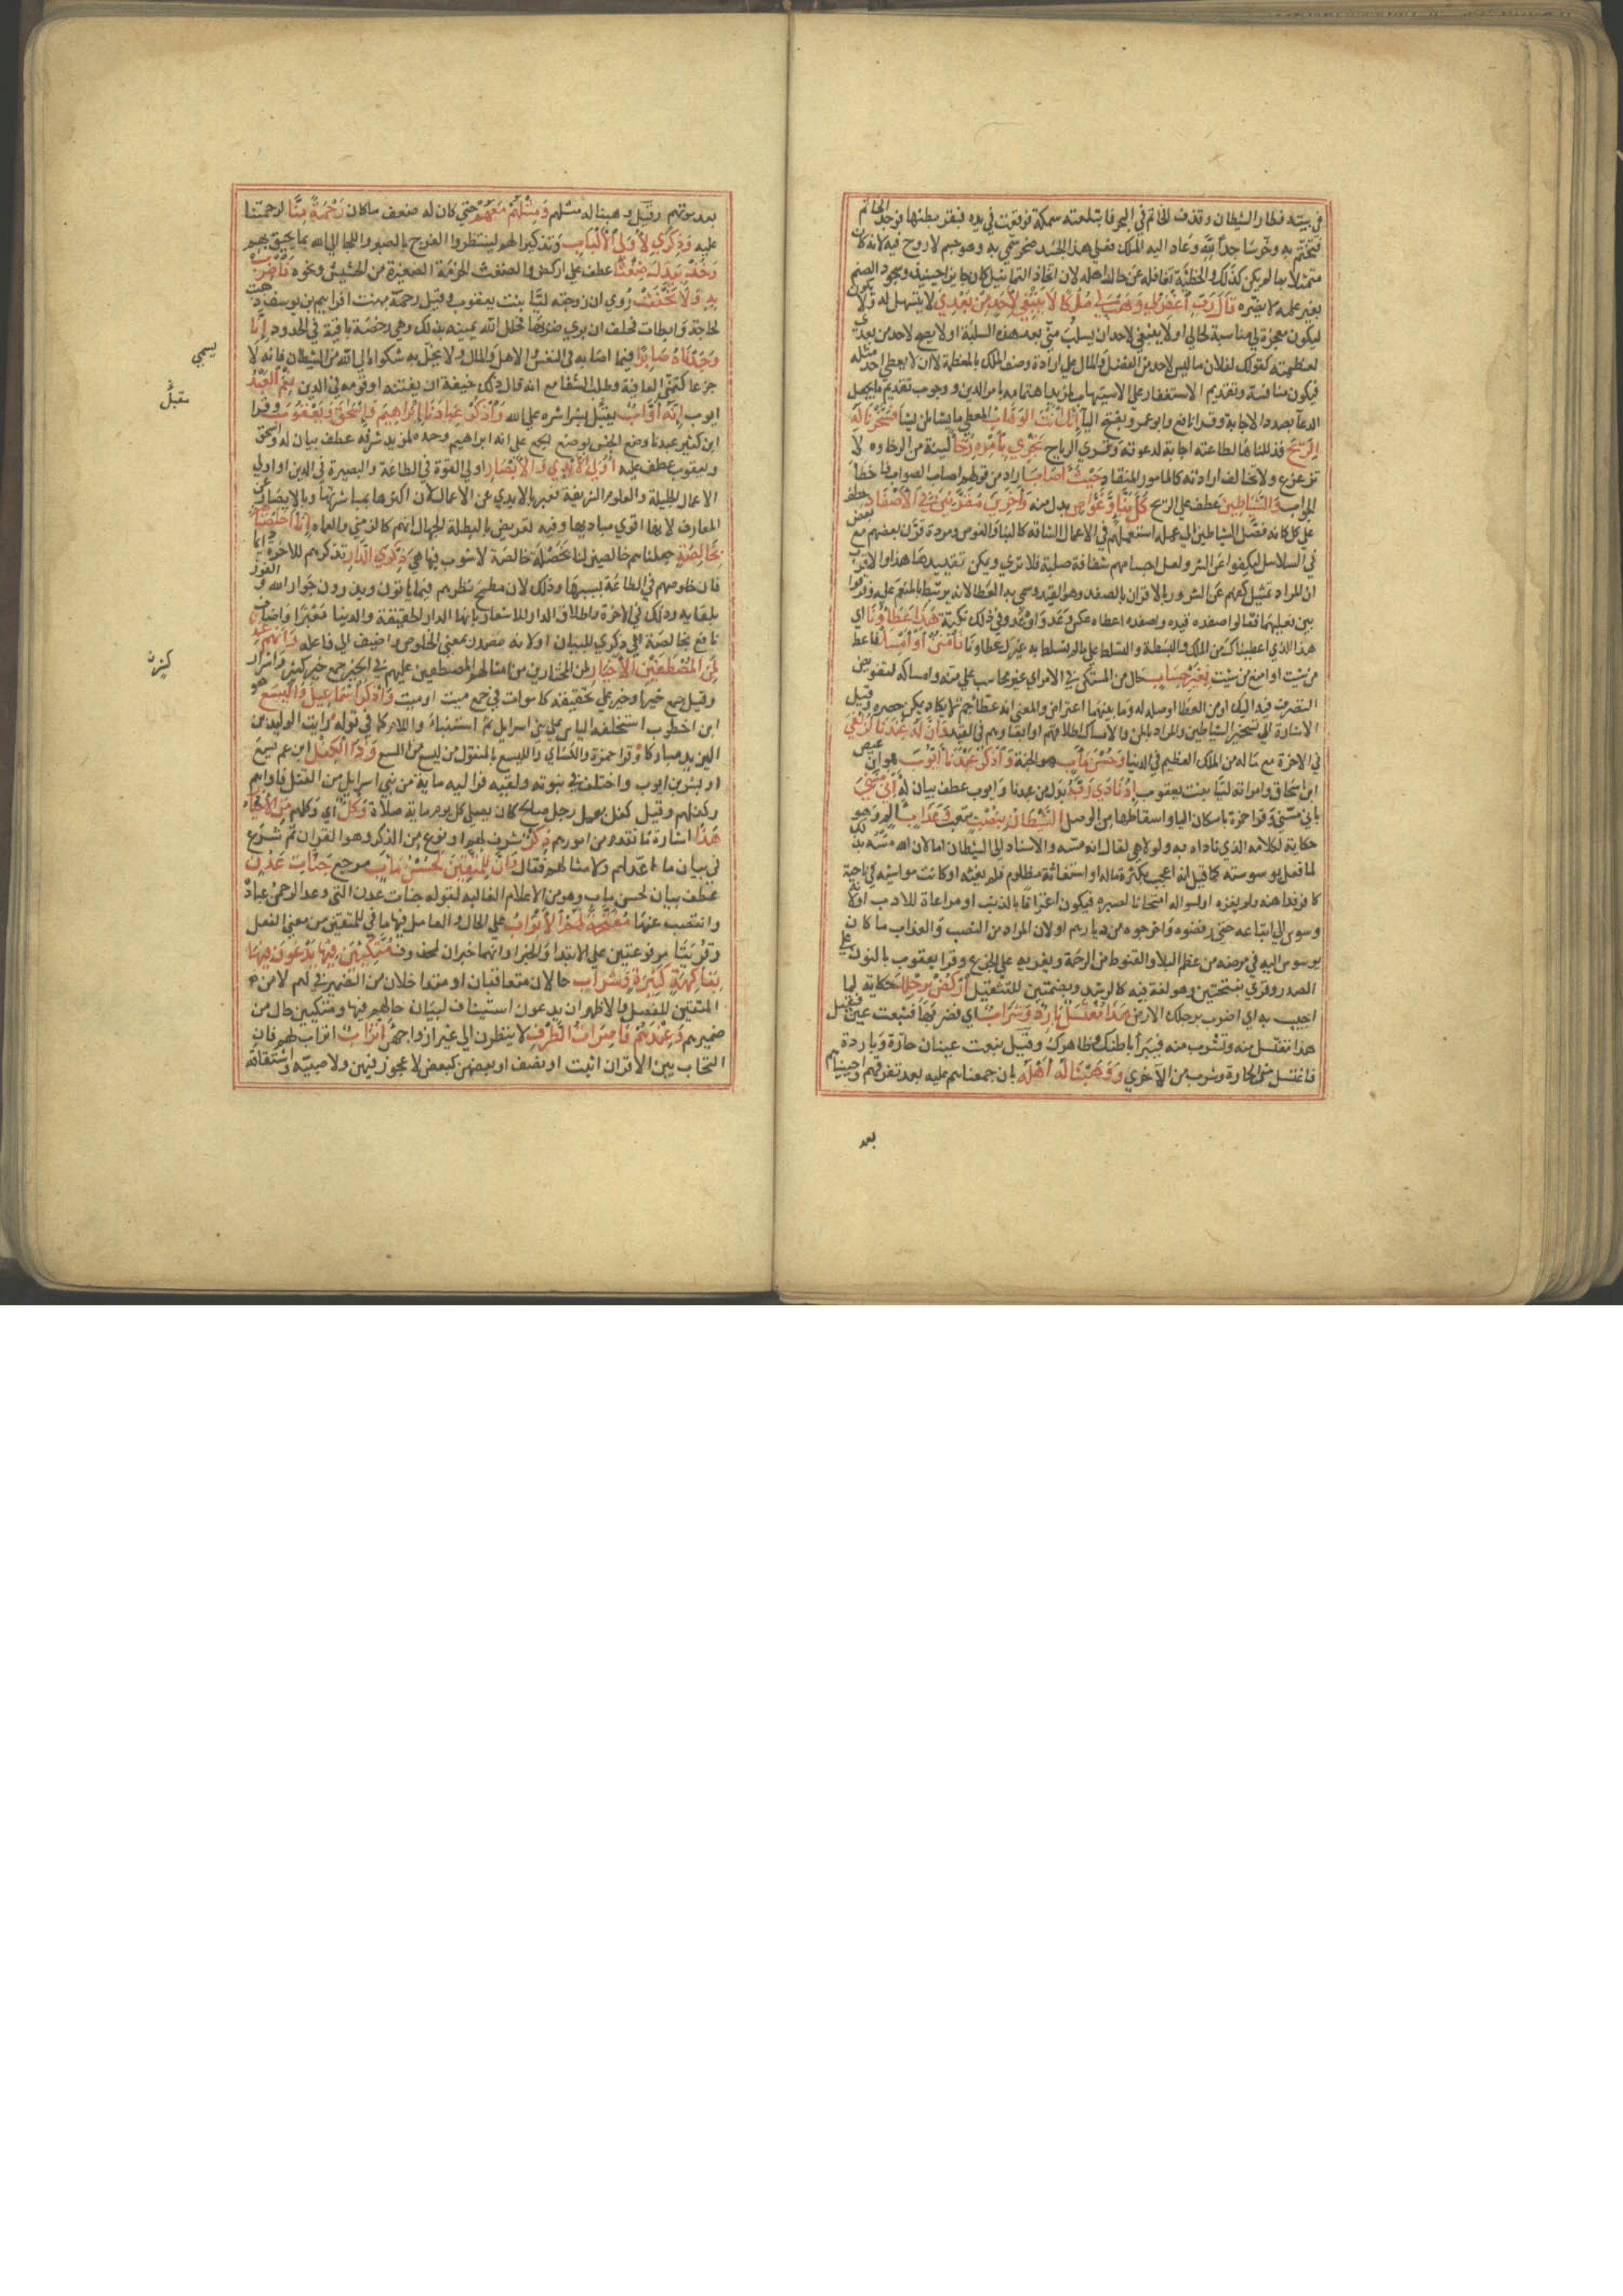 في بيته فطار الشيطان وقذف الخاتم في البحر فابتلعته سمكة فوقعت في يده فبقر بطنها فوجد الخاتم
فتختم به وخر ساجدا لله وعاد اليه الملك فعلي هذا الجسد صخر سمي به وهو جسم لا روح فيه لانه كان
متمثلا بما لم يكن كذلك والخطيئة تغافله عن حال اهله لان اتخاذ التماثيل كان جايزا حينيذ وسجود الصنم
بغير علمه لا يضره قال رب اغفر لي وهب لي ملكا لا ينبغي لاحد من بعدي لا يتسهل له ولا يكون
ليكون معجزة لي مناسبة لحالي او لا ينبغي لاحد ان يسلبه مني بعد هذه السلبة او لا يصح لاحد من بعدي
لعظمته كقولك لفلان ما ليس لاحد من الفضل والمال علي ارادة وصف الملك بالعظمة لا ان لا يعطي احد مثله
فيكون منافسة وتقديم الاستغفار علي الاستيهاب لمزيد اهتمامه بامر الدين ووجوب تقديم ما يجعل
الدعا بصدد الاجابة وقرا نافع وابو عمرو بفتح اليا انك انت الوهاب المعطي ما يشا لمن يشا فسخرنا له
الريح فذللناها لطاعته اجابة لدعوته وقري الرياح تجري بامره رخا لينة من الرخاوة لا
تزعزع ولا تخالف ارادته كالمامور المنقاد حيث اصاب اراد من قولهم اصاب الصواب فاخطا
الجواب والشياطين عطف علي الريح كل بنا وغواص بدل منه واخرين مقرنين في الاصفاد عطف
علي كل كانه فصل الشياطين الي عملة استعملهم في الاعمال الشاقة كالبنا والغوص ومردة قرن بعضهم مع بعض
في السلاسل ليكفوا عن الشر ولعل اجسامهم شفافة صلبة فلا تري ويمكن تقييدها هذا والاقرب
ان المراد تمثيل كفهم عن الشرور بالاقران بالصفد وهو القيد وسمي به العطا لانه يرتبط بالمنعم عليه وفرقوا
بين فعليهما فقالوا صفده قيده واصفده اعطاه عكس وعد واوعد وفي ذلك نكتة هذا عطاونا اي
هذا الذي اعطيناك من الملك والبسطة والتسلط علي ما لم يتسلط به غيرك عطاونا فامنن او امسك فاعط
من شيت وامنع من شيت بغير حساب حال من المستكن في الامر اي غير محاسب علي منه وامساكه لتفويض
التصرف فيه اليك او من العطا او صلة له وما بينهما اعتراض والمعني انه عطا جم لا يكاد يمكن حصره وقيل
الاشارة الي تسخير الشياطين والمراد بالمن والامساك اطلاقهم او ابقاوهم في القيد وان له عندنا لزلفي
في الاخرة مع ما له من الملك العظيم في الدنيا وحسن ماب هو الجنة واذكر عبدنا ايوب هو ابن عيص
ابن اسحاق وامراته ليا بنت يعقوب اذ نادي ربه بدل من عبدنا وايوب عطف بيان له اني مسني
باني مسني وقرا حمزة باسكان اليا واسقاطها من الوصل الشيطان بنصب بتعب وعذاب الم وهو
حكاية لكلامه الذي ناداه به ولولا هي لقال انه مسه والاسناد الي الشيطان اما لان الله مسه بذلك
لما فعل بوسوسته كما قيل انه اعجب بكثرة ماله او استغاثه مظلوم فلم يغثه او كانت مواشيه في ناحية
كافر فداهنه ولم يغزه او لسواله امتحانا لصبره فيكون اعترافا بالذنب او مراعاة للادب او لانه
وسوس الي اتباعه حتي رفضوه واخرجوه من ديارهم او لان المراد من النصب والعذاب ما كان
يوسوس اليه في مرضه من عظم البلا والقنوط من الرحمة ويغريه علي الجزع وقرا يعقوب بالنون علي
الصدر وقري بفتحتين وهو لغة فيه كالرشد وبضمتين للتثقيل اركض برجلك حكاية لما
اجيب به اي اضرب برجلك الارض هذا مغتسل بارد وشراب اي فضربها فنبعت عين فقيل
هذا تغتسل منه وتشرب منه فيبرا باطنك وظاهرك وقيل نبعت عينان حارة وباردة
فاغتسل من الحارة وشرب من الاخري ووهبنا له اهله بان جمعناهم عليه بعد تفرقهم واحييناهم
بعد
بعد موتهم وقيل وهبنا له مثلهم ومثلهم معهم حتي كان له ضعف ما كان رحمة منا لرحمتنا
عليه وذكري لاولي الالباب وتذكيرا لهم لينتظروا الفرج بالصبر واللجا الي الله بما يحيق بهم
وخذ بيدك ضغثا عطف علي اركض والضغث الحزمة الصغيرة من الحشيش ونحوه فاضرب
به ولا تحنث روي ان زوجته ليا بنت يعقوب وقيل رحمة بنت افراييم بن يوسف ذهبت
لحاجة وابطات فحلف ان بري ضربها فحلل الله يمينه بذلك وهي رخصة باقية في الحدود انا
وجدناه صابرا فيما اصابه في النفس والاهل والمال ولا يخل به شكواه الي الله من الشيطان فانه لا يسمي
جزعا كتمني العافية وطلب الشفا مع انه قال ذلك خيفة ان يفتنه او قومه في الدين نعم العبد
ايوب انه اواب مقبل بشراشره علي الله واذكر عبادنا ابراهيم واسحق ويعقوب وقرا
ابن كثير عبدنا وضع الجنس موضع الجمع علي انه ابراهيم وحده لمزيد شرفه عطف بيان له واسحق
ويعقوب عطف عليه اولي الايدي والابصار اولي القوة في الطاعة والبصيرة في الدين او اولي
الاعمال الجليلة والعلوم الشريفة فعبر بالايدي عن الاعمال لان اكثرها بمباشرتها وبالابصار عن
المعارف لانها اقوي مباديها وفيه تعريض بالبطلة الجهال انهم كالزمني والعماه انا اخلصناهم
بخالصة جعلناهم خالصين لنا بخصلة خالصة لا شوب فيها هي ذكري الدار تذكرهم للاخرة دائما
فان خلوصهم في الطاعة بسببها وذلك لان مطمح نظرهم فيما ياتون ويذرون جوار الله والفوز
بلقايه وذلك في الاخرة واطلاق الدار للاشعار بانها الدار الحقيقة والدنيا معبر واضاف
نافع بخالصة الي ذكري للبيان او لانه مصدر بمعني الخلوص واضيف الي فاعله وانهم عندنا
لمن المصطفين الاخيار لمن المختارين من امثالهم المصطفين عليهم في الخير جمع خير كشر واشرار
وقيل جمع خير او خير علي تحقيقه كاموات في جمع ميت او ميت واذكر اسماعيل واليسع هو
ابن اخطوب استخلفه الياس علي بني اسرايل ثم استنبا واللام كما في قوله رايت الوليد بن
اليزيد مباركا وقرا حمزة والكساي والليسع بالمنقول من ليسع من اللسع وذا الكفل ابن عم يسع
او بشر بن ايوب واختلف في نبوته ولقبه فر اليه ماية من بني اسرايل من القتل فاواهم
وكفلهم وقيل كفل بعمل رجل صالح كان يصلي كل يوم ماية صلاة وكل اي وكلهم من الاخيار
هذا اشارة لما تقدم من امورهم ذكر شرف لهم او نوع من الذكر وهو القران ثم شرع
في بيان ما اعد لهم ولامثالهم فقال وان للمتقين لحسن ماب مرجع جنات عدن
عطف بيان لحسن ماب وهو من الاعلام الغالبة لقوله جنات عدن التي وعد الرحمن عباده
وانتصب عنها مفتحة لهم الابواب علي الحال والعامل فيها ما في للمتقين من معني الفعل
وقريتا مرفوعتين علي الابتدا والخبر او انهما خبران لمحذوف متكيين فيها يدعون فيها
بفاكهة كثيرة وشراب حالان متعاقبان او متداخلان من الضمير في لهم لا من
المتقين للفصل والاظهر ان يدعون استيناف لبيان حالهم فيها ومتكيين حال من
ضميرهم وعندهم قاصرات الطرف لا ينظرون الي غير ازواجهن اتراب اتراب لهم فان
التحاب بين الاقران اثبت او بضف او بعضهن كبعض لا عجوز فيهن ولا صبية واشتقاقه
يسمي
مقبل